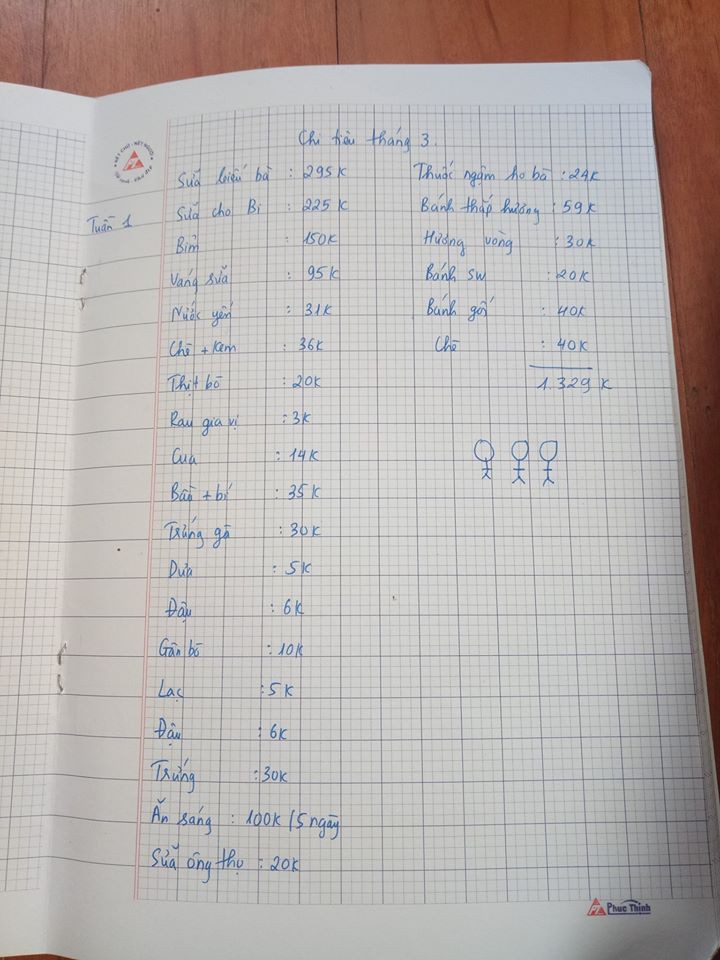 Chi tiêu tháng 3.
Tuần 1
Sữa biếu bà : 295K
Sữa cho Bi : 225K
Bỉm : 150K
Váng sữa : 95K
Nước yến : 31K
Chè + kem : 36K
Thịt bò : 20K
Rau gia vị : 3K
Cua : 14K
Bầu + bí : 35K
Trứng gà : 30K
Dưa : 5K
Đậu : 6K
Gân bò : 10K
Lạc : 5K
Đậu : 6K
Trứng : 30K
Ăn sáng : 100K / 5 ngày
Sữa ông thọ : 20K
Thuốc ngậm ho bà : 24K
Bánh thắp hương : 59K
Hương vòng : 30K
Bánh su : 20K
Bánh gối : 40K
Chè : 40K
1.329 K
NÉT CHỮ - NẾT NGƯỜI
Phuc Thinh